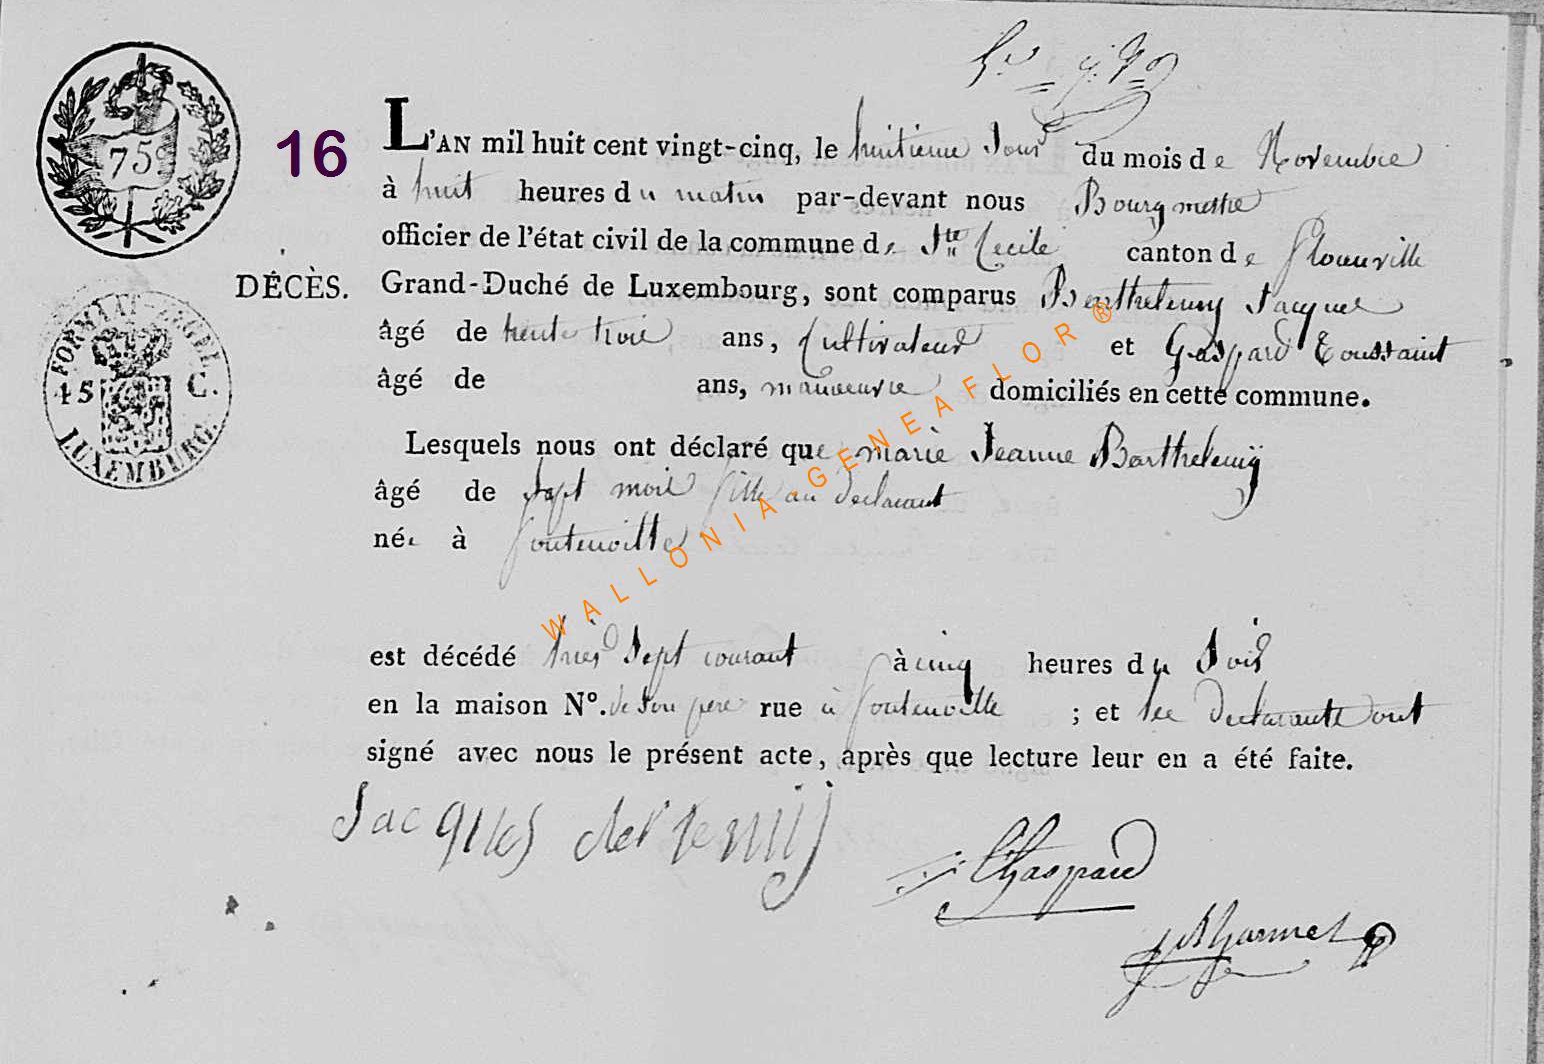 75
16
L'AN mil huit cent vingt-cinq, le huitieme Jour du mois de Novembre
à huit heures du matin par-devant nous Bourgmestre
officier de l'état civil de la commune de Ste Cecile canton de Florenville
DÉCÈS.
Grand-Duché de Luxembourg, sont comparus Berthelemy Jacques
âgé de trente trois ans, Cultivateur et Gaspard Toussaint
âgé de ans, manoeuvre domiciliés en cette commune.
FORMAAT ZEGEL
45 C.
LUXEMBURG.
Lesquels nous ont déclaré que marie Jeanne Barthelemÿ
âgé de Sept mois fille au declarant
née à fontenoille
est décédé hier Sept courant à cinq heures du Soir
en la maison N°. de son pere rue à fontenoille ; et les declarants ont
signé avec nous le présent acte, après que lecture leur en a été faite.
Jacques
Gaspard
WALLONIA-GENEAFLOR®